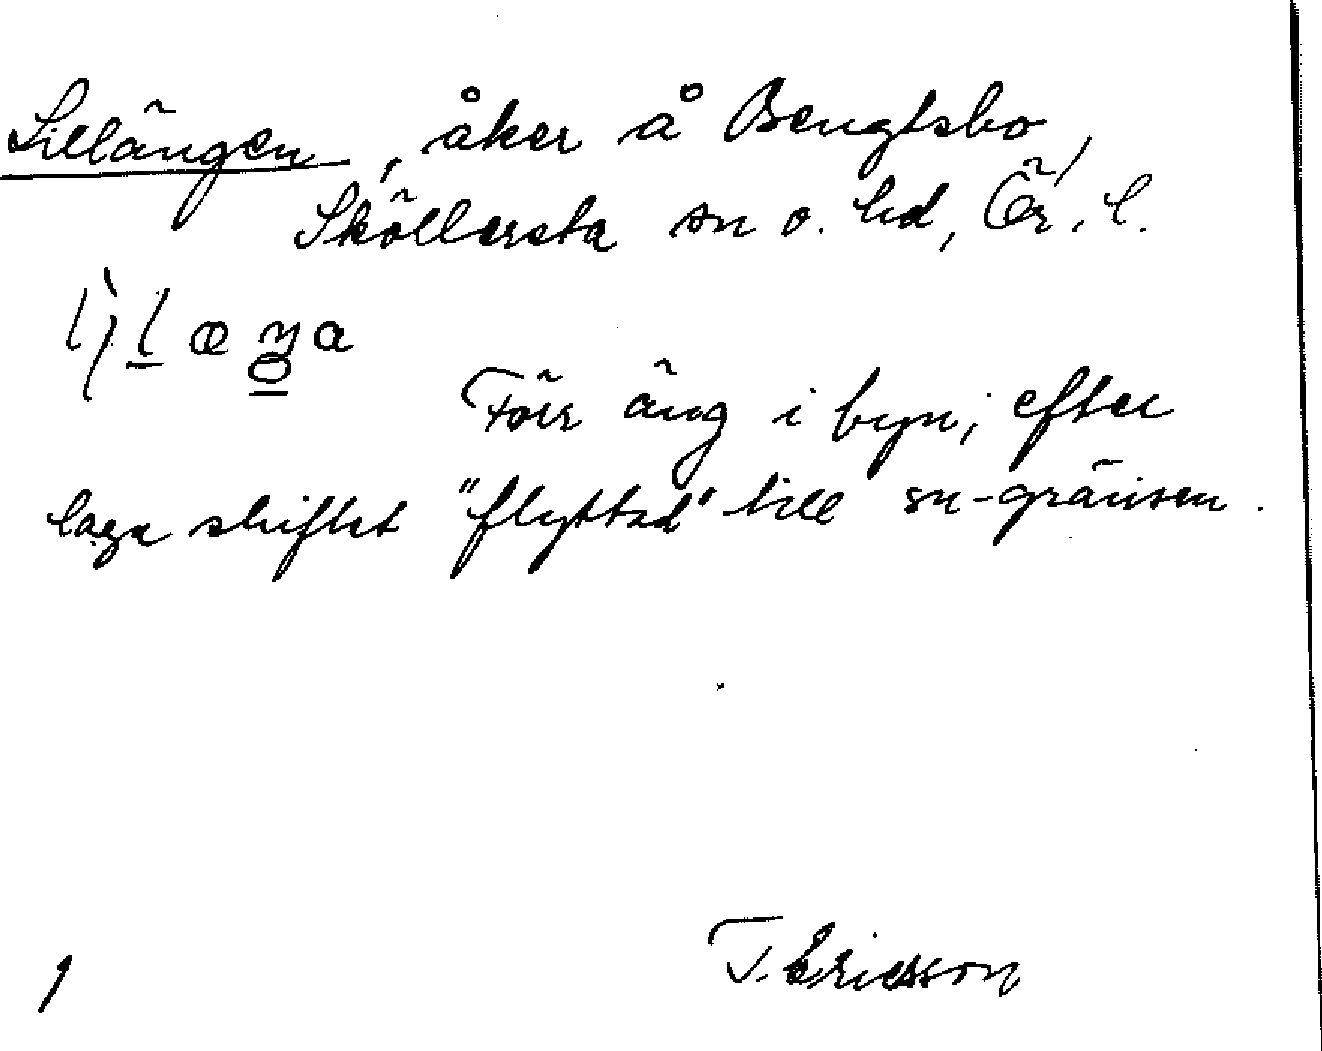 Lillängen, åker å Bengtsbo,
Sköllersta sn o. hd, Ör. l.
Förr äng i byn; efter
laga skiftet "flyttad" till sn-gränsen.
T. Ericsson